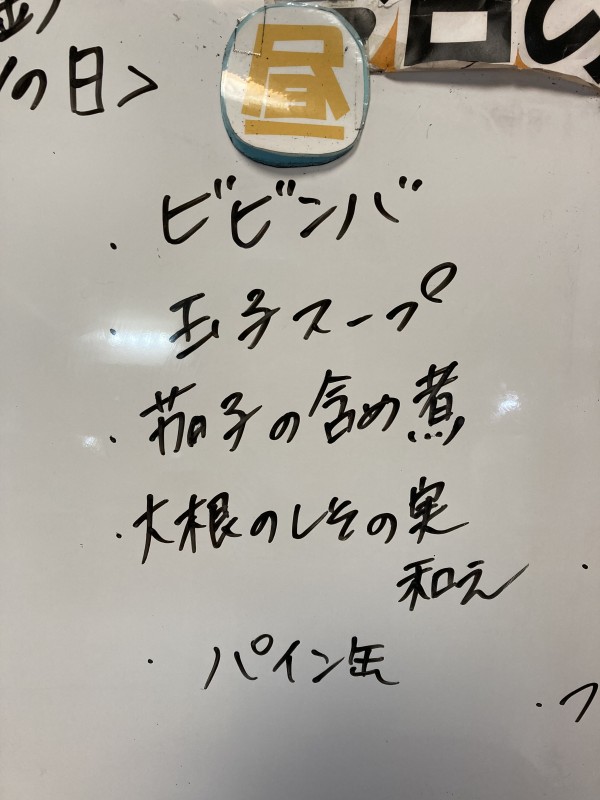 の日>
昼
・ビビンバ
・玉子スープ
・茄子の含め煮
・大根のしその実
和え
・パイン缶